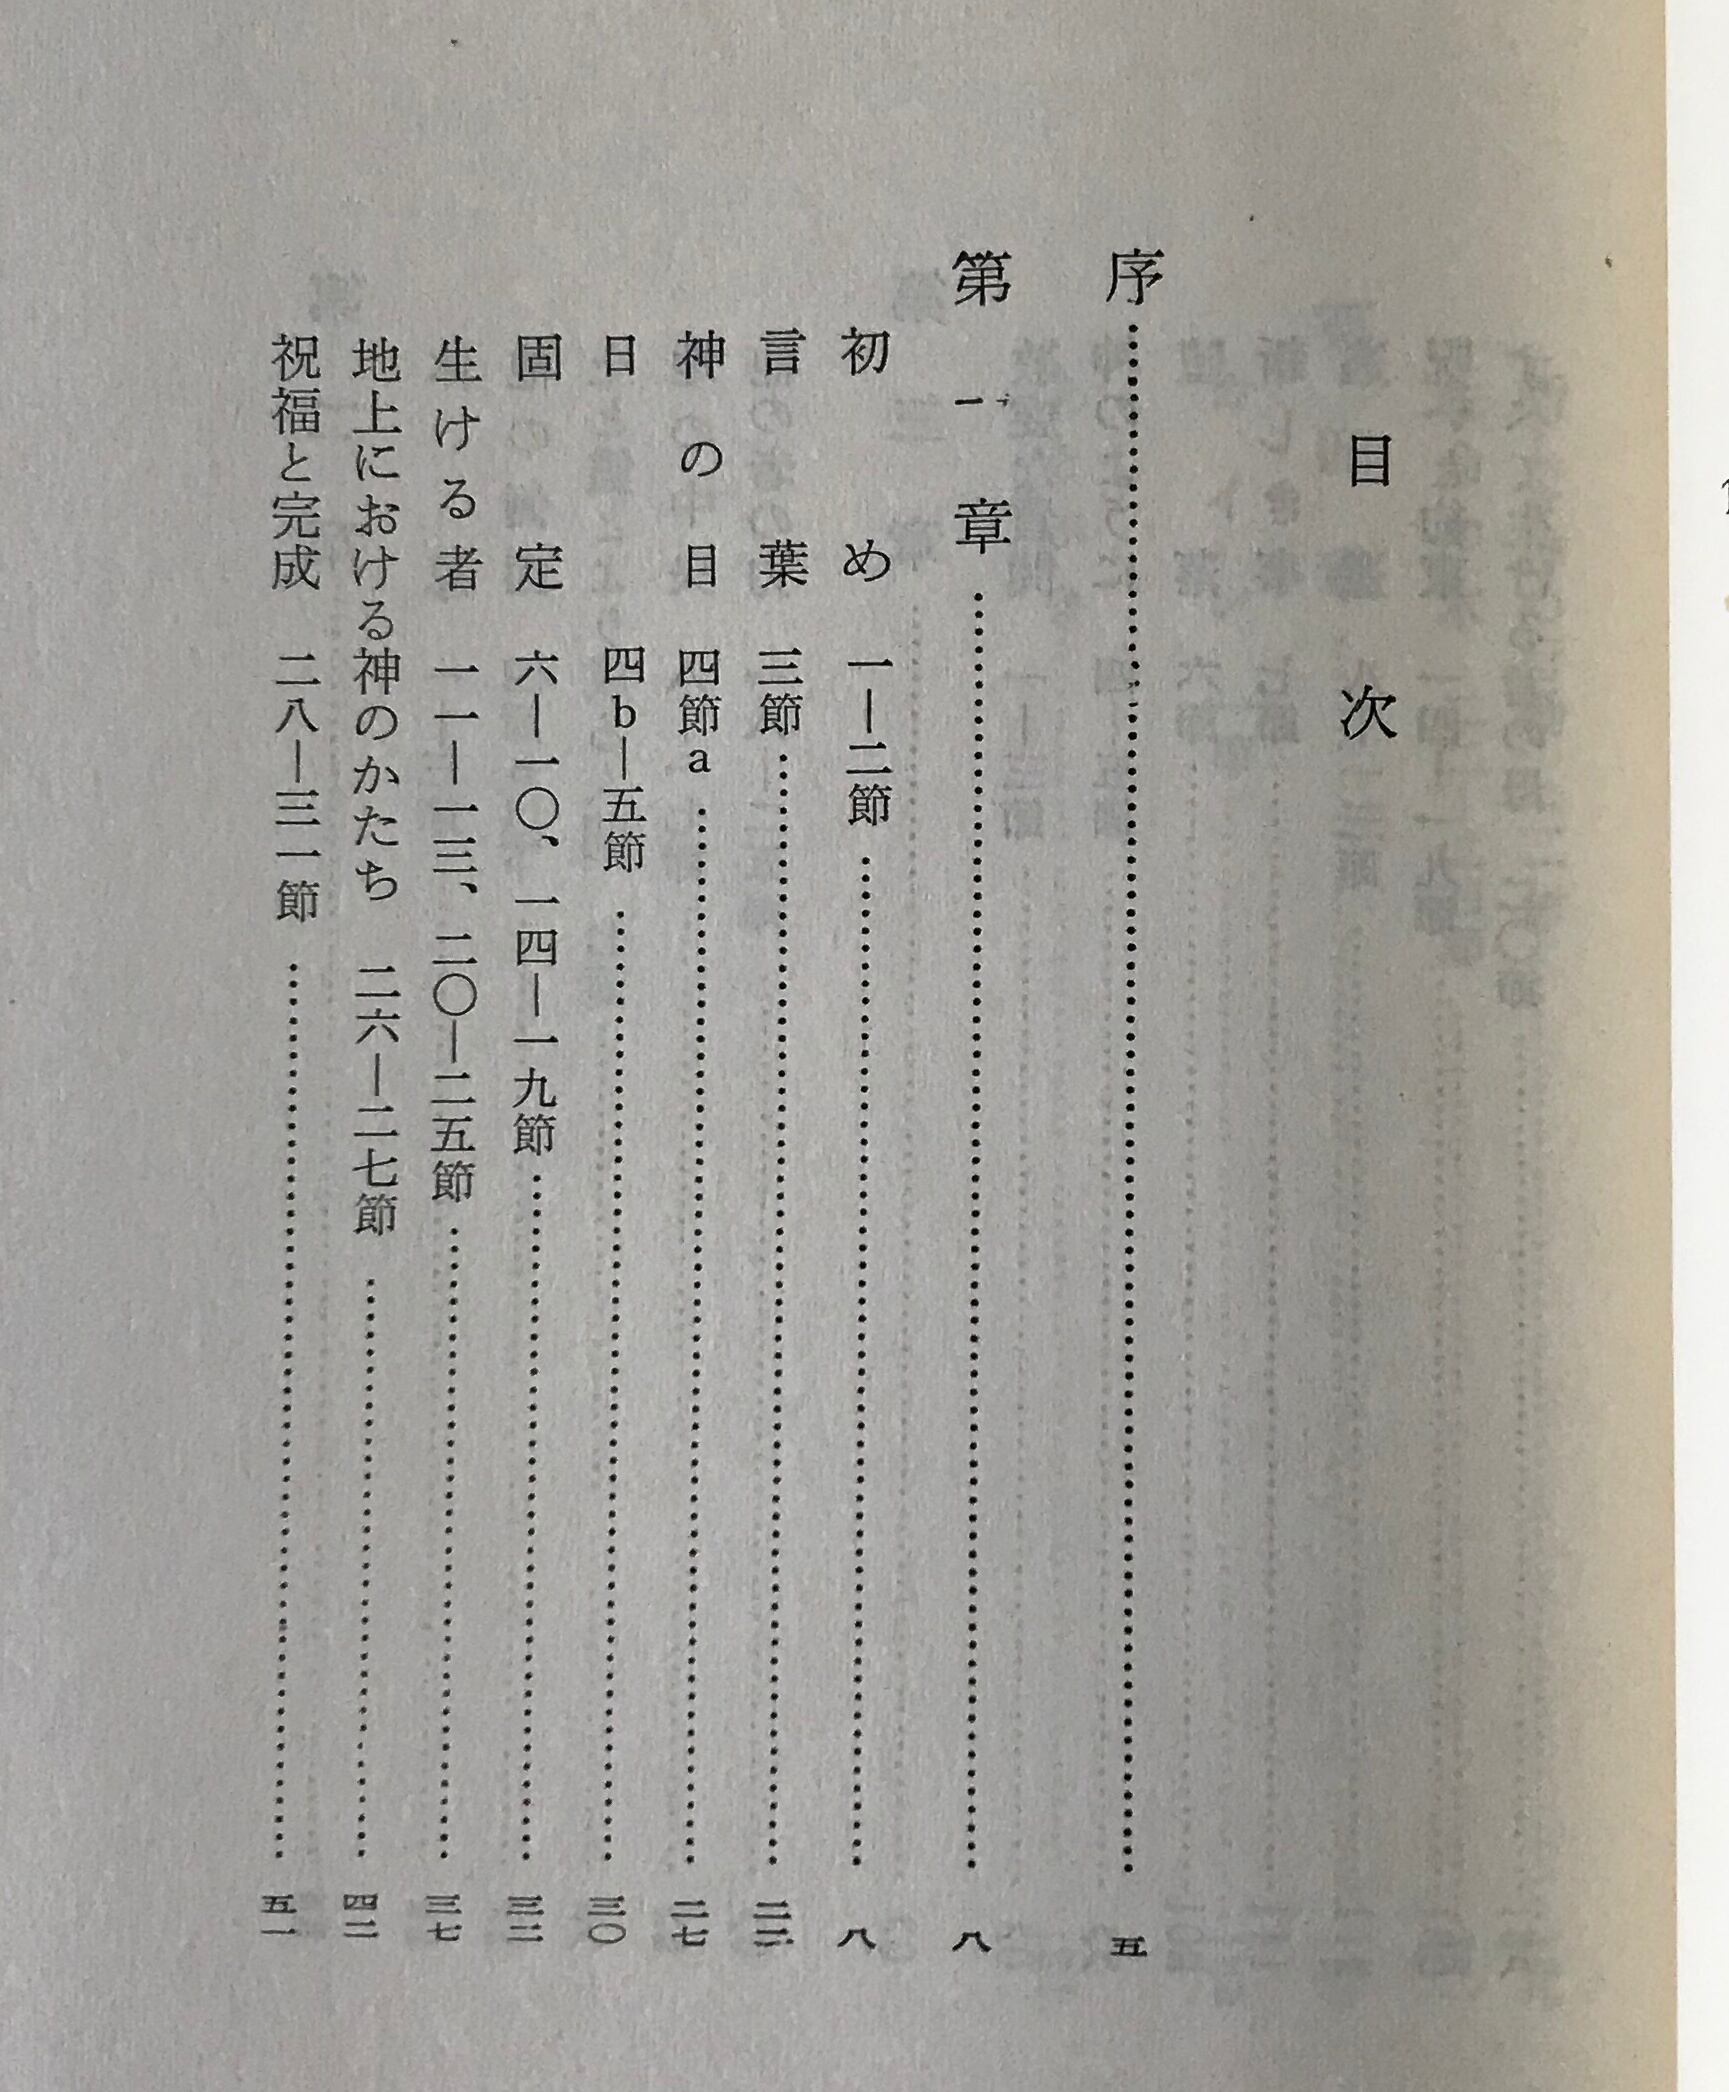 目次
序……五
第一章……八
初め 一―二節……八
言葉 三節……二三
神の目 四節a……二七
日 四b―五節……三〇
固定 六―一〇、一四―一九節……三二
生ける者 一一―一三、二〇―二五節……三七
地上における神のかたち 二六―二七節……四二
祝福と完成 二八―三一節……五一